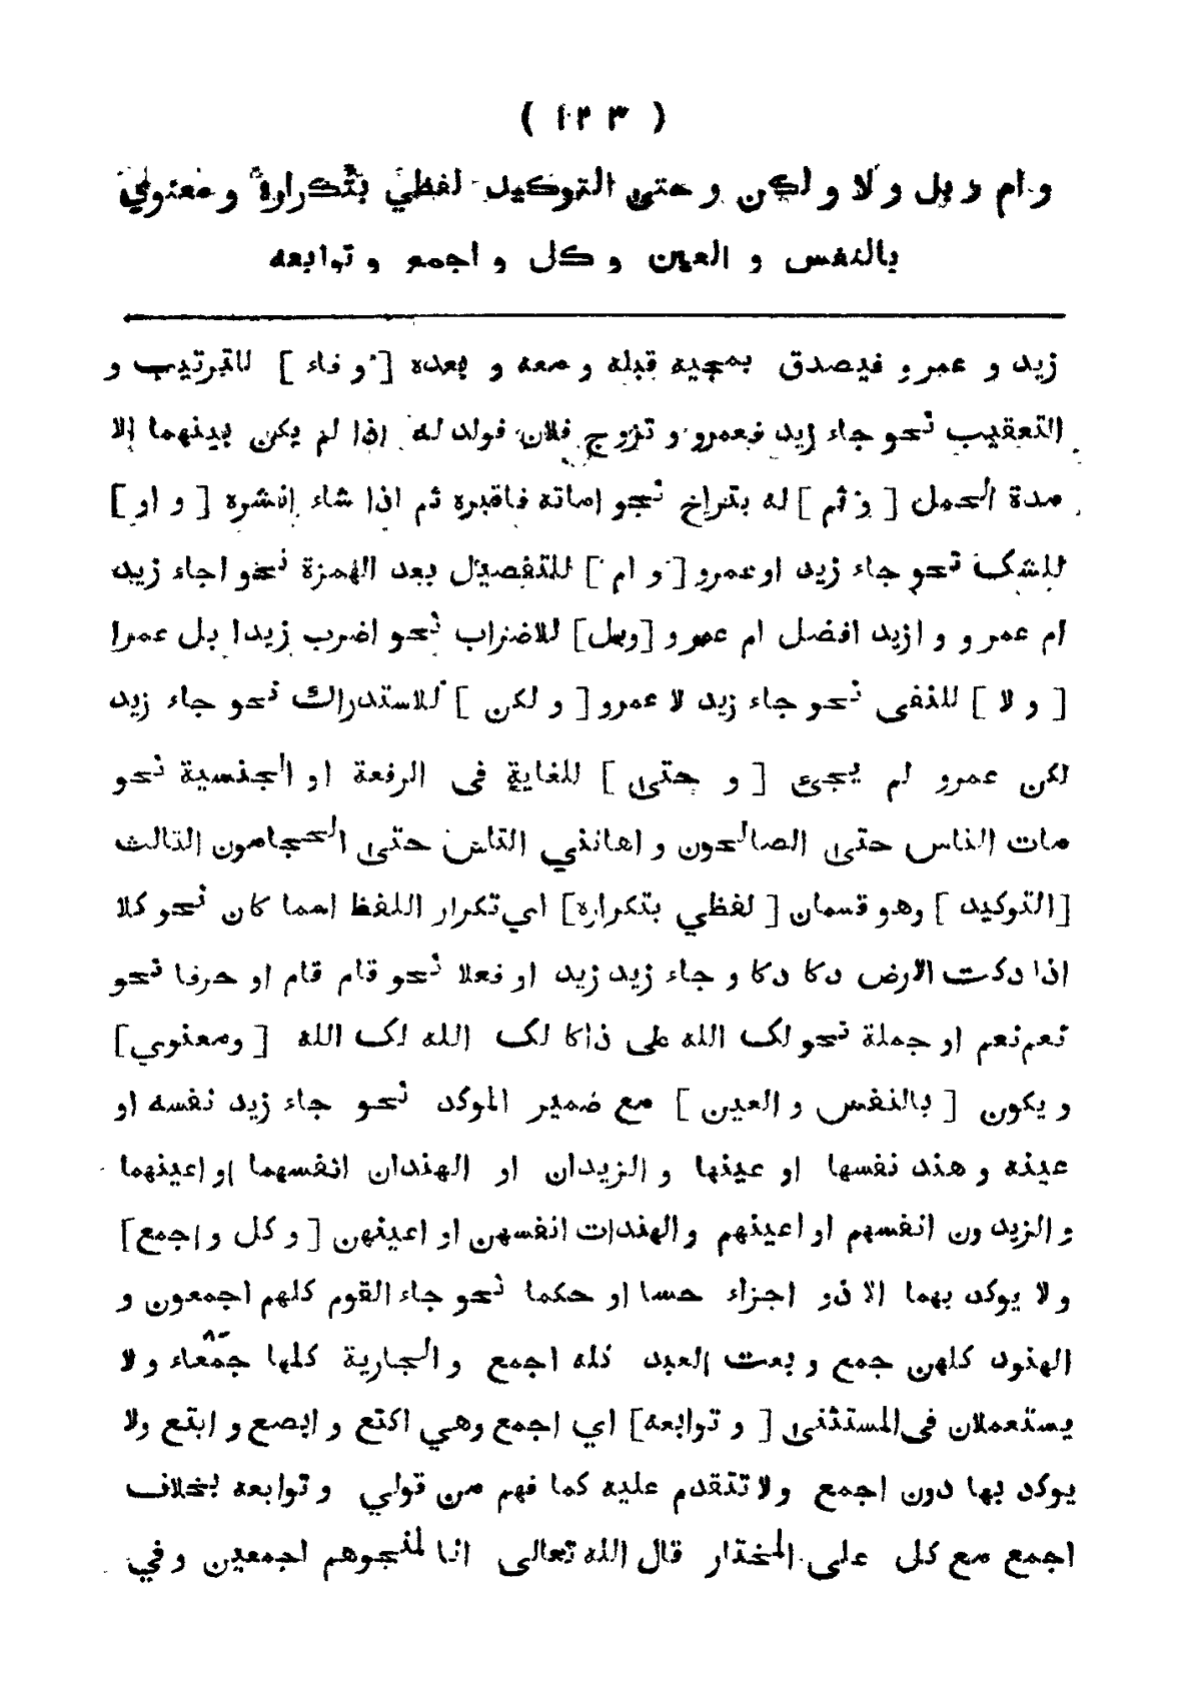 ( ١٢٣ )
و ام و بل و لا و لكن و حتى التوكيد لفظي بتكراره و معنوي
بالنفس و العين و كل و اجمع و توابعه
زيد و عمرو فيصدق بمجيه قبله و معه و بعده [ و فاء ] للترتيب و
التعقيب نحو جاء زيد فعمرو و تزوج فلان فولد له اذا لم يكن بينهما إلا
مدة الحمل [ و ثم ] له بتراخ نحو اماته فاقبره ثم اذا شاء انشره [ و او ]
للشك نحو جاء زيد او عمرو [ و ام ] للتفصيل بعد الهمزة نحو اجاء زيد
ام عمرو و ازيد افضل ام عمرو [وبل] للاضراب نحو اضرب زيدا بل عمرا
[ و لا ] للنفى نحو جاء زيد لا عمرو [ و لكن ] للاستدراك نحو جاء زيد
لكن عمرو لم يجئ [ و حتى ] للغاية فى الرفعة او الجنسية نحو
مات الناس حتى الصالحون و اهانني الناس حتى الحجامون الثالث
[التوكيد ] وهو قسمان [ لفظي بتكراره] اي تكرار اللفظ اسما كان نحو كلا
اذا دكت الارض دكا دكا و جاء زيد زيد او فعلا نحو قام قام او حرفا نحو
نعم نعم او جملة نحو لك الله على ذاكا لك الله لك الله [ ومعنوي]
و يكون [ بالنفس و العين ] مع ضمير الموكد نحو جاء زيد نفسه او
عينه و هند نفسها او عينها و الزيدان او الهندان انفسهما او اعينهما
و الزيدون انفسهم او اعينهم و الهندات انفسهن او اعينهن [ و كل و اجمع]
و لا يوكد بهما الا ذو اجزاء حسا او حكما نحو جاء القوم كلهم اجمعون و
الهنود كلهن جمع و بعت العبد كله اجمع و الجارية كلها جَمْعَاء و لا
يستعملان فى المستثنى [ و توابعه] اي اجمع وهي اكتع و ابصع و ابتع ولا
يوكد بها دون اجمع و لا تتقدم عليه كما فهم من قولي و توابعه بخلاف
اجمع مع كل على المختار قال الله تعالى انا لمنجوهم اجمعين و في